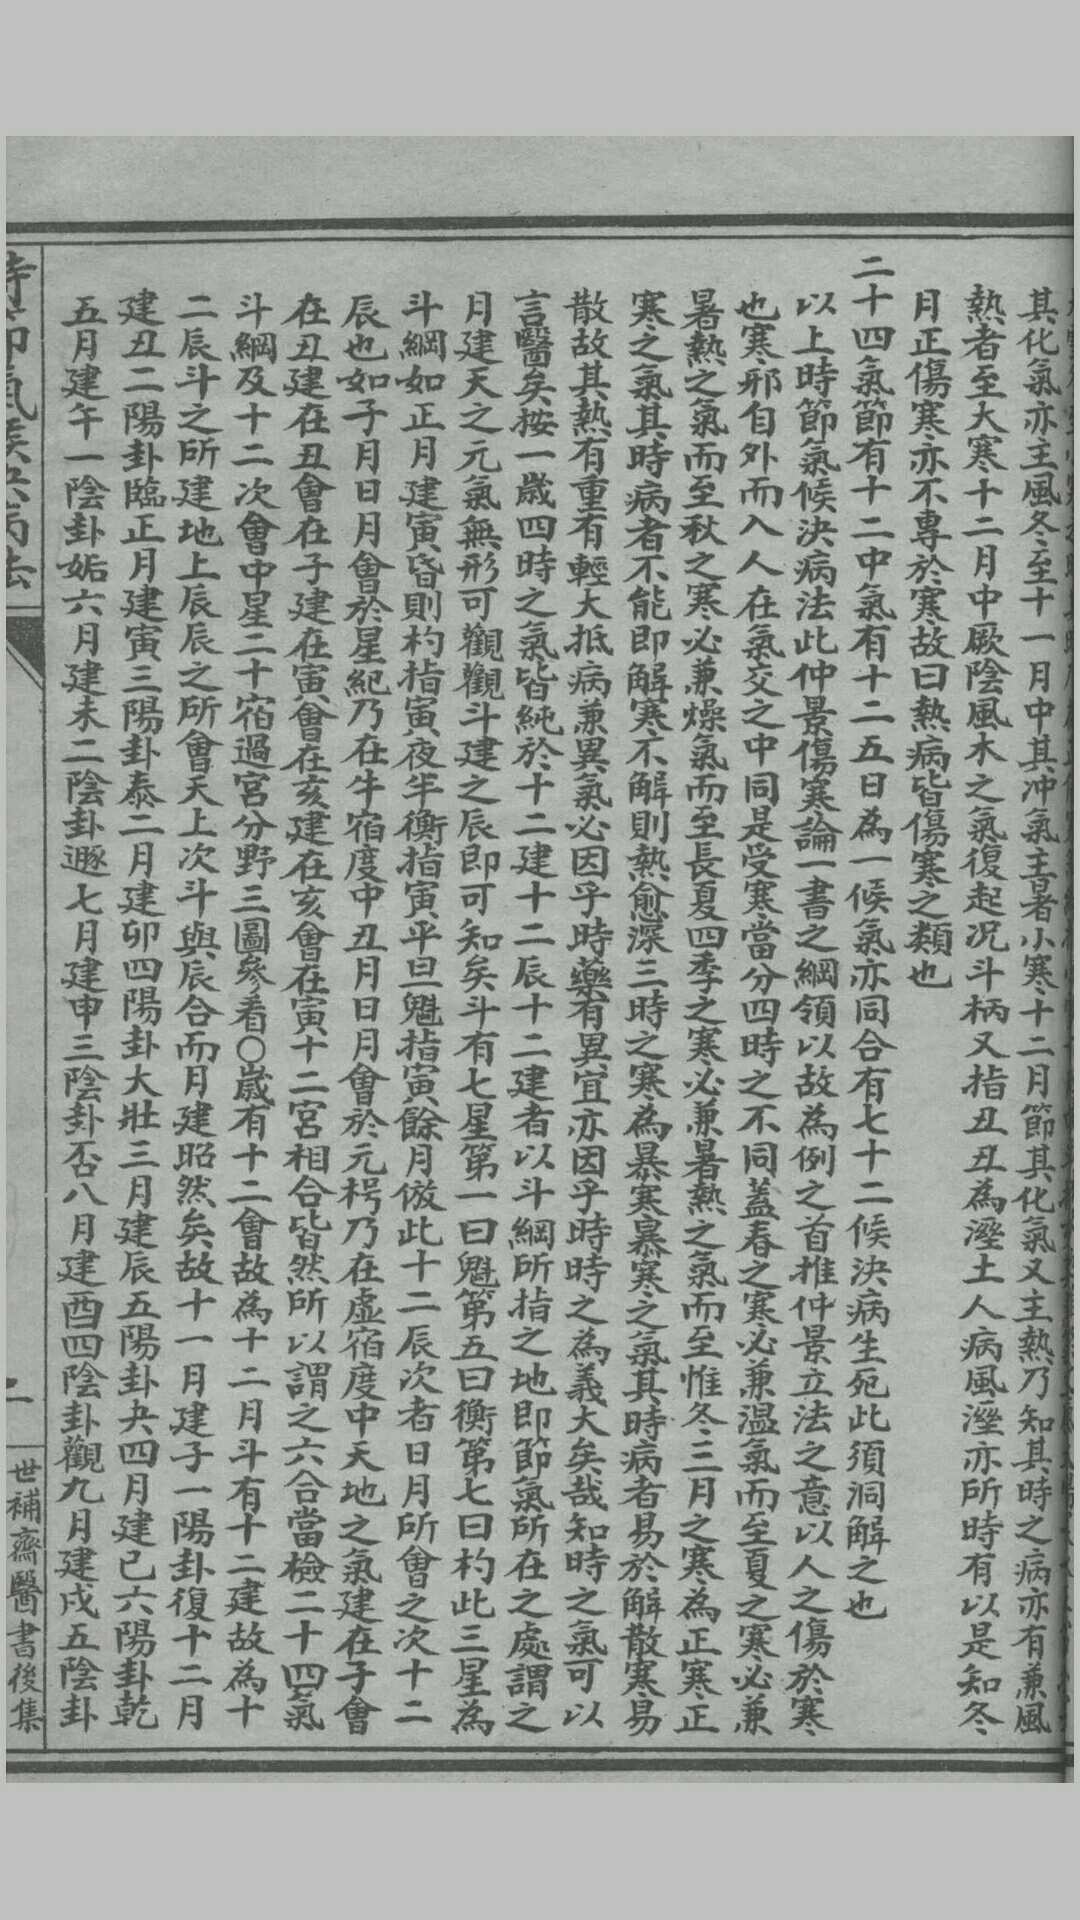 其化氣亦主風冬至十一月中其冲氣主暑小寒十二月節其化氣又主熱乃知其時之病亦有兼風
熱者至大寒十二月中厥陰風木之氣復起况斗柄又指丑丑為溼土人病風溼亦所時有以是知冬
月正傷寒亦不專於寒故曰熱病皆傷寒之類也
二十四氣節有十二中氣有十二五日為一候氣亦同合有七十二候決病生死此須洞解之也
以上時節氣候決病法此仲景傷寒論一書之綱領以故為例之首推仲景立法之意以人之傷於寒
也寒邪自外而入人在氣交之中同是受寒當分四時之不同蓋春之寒必兼温氣而至夏之寒必兼
暑熱之氣而至秋之寒必兼燥氣而至長夏四季之寒必兼暑熱之氣而至惟冬三月之寒為正寒正
寒之氣其時病者不能即解寒不解則熱愈深三時之寒為暴寒暴寒之氣其時病者易於解散寒易
散故其熱有重有輕大抵病兼異氣必因乎時藥有異宜亦因乎時時之為義大矣哉知時之氣可以
言醫矣按一歲四時之氣皆純於十二建十二辰十二建者以斗綱所指之地即節氣所在之處謂之
月建天之元氣無形可觀觀斗建之辰即可知矣斗有七星第一曰魁第五曰衡第七曰杓此三星為
斗綱如正月建寅昏則杓指寅夜半衡指寅平旦魁指寅餘月倣此十二辰次者日月所會之次十二
辰也如子月日月會於星紀乃在牛宿度中丑月日月會於元枵乃在虛宿度中天地之氣建在子會
在丑建在丑會在子建在寅會在亥建在亥會在寅十二宮相合皆然所以謂之六合當檢二十四氣
斗綱及十二次會中星二十宿過宮分野三圖參看○歲有十二會故為十二月斗有十二建故為十
二辰斗之所建地上辰辰之所會天上次斗與辰合而月建昭然矣故十一月建子一陽卦復十二月
建丑二陽卦臨正月建寅三陽卦泰二月建卯四陽卦大壯三月建辰五陽卦夬四月建巳六陽卦乾
五月建午一陰卦姤六月建未二陰卦遯七月建申三陰卦否八月建酉四陰卦觀九月建戌五陰卦
二
世補齋醫書後集